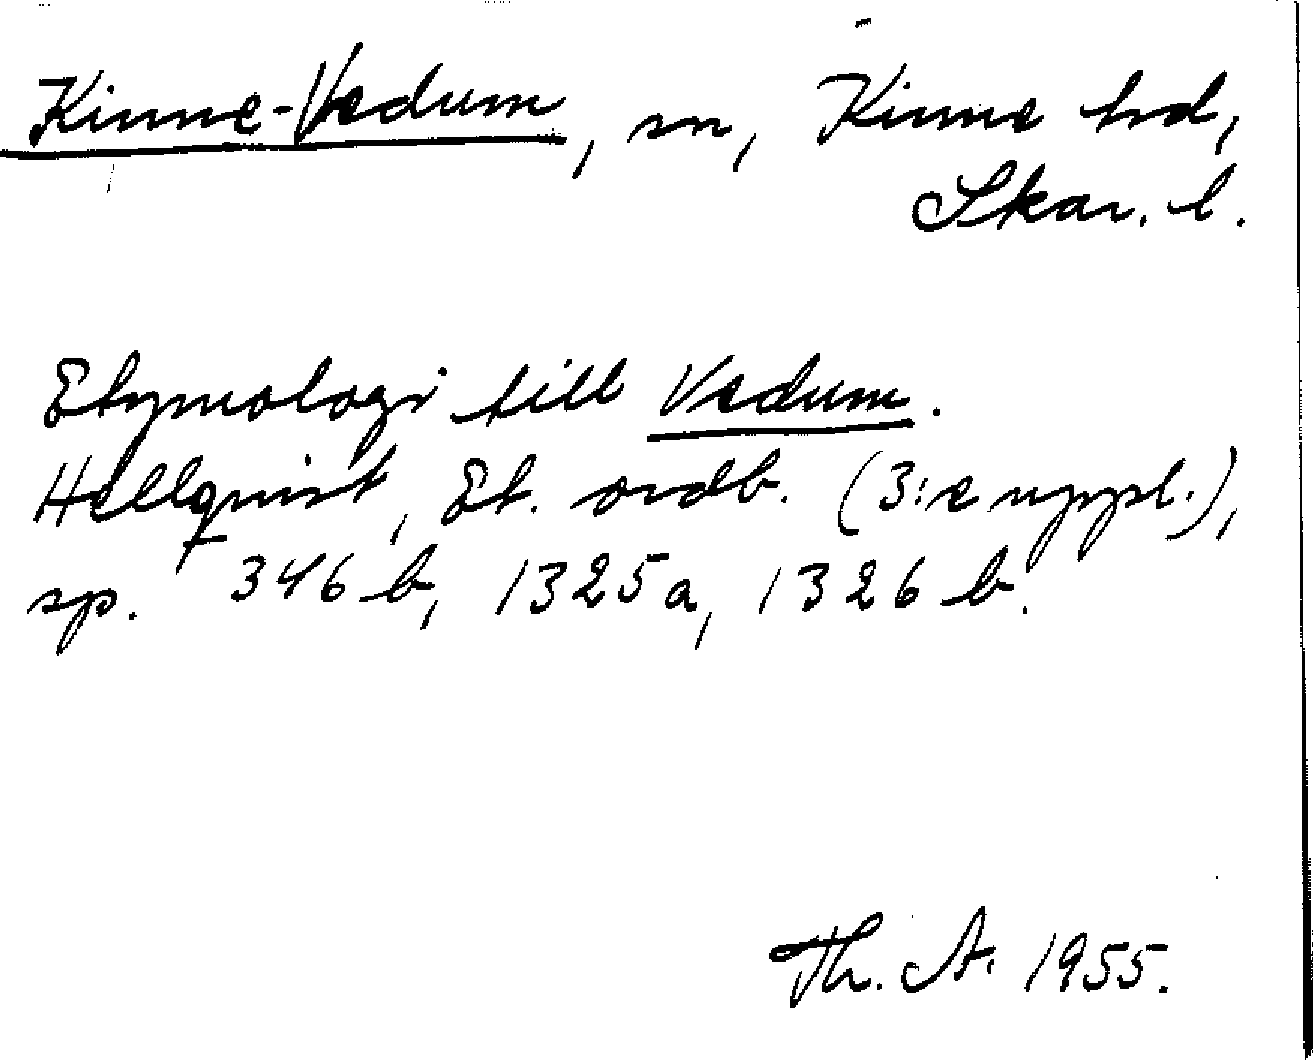 Kinne-Vedum, sn, Kinne hd,
Skar. l.
Etymologi till Vedum.
Hellquist, Et. ordb. (3:e uppl.),
sp. 346 b, 1325 a, 1326 b.
Th. A. 1955.